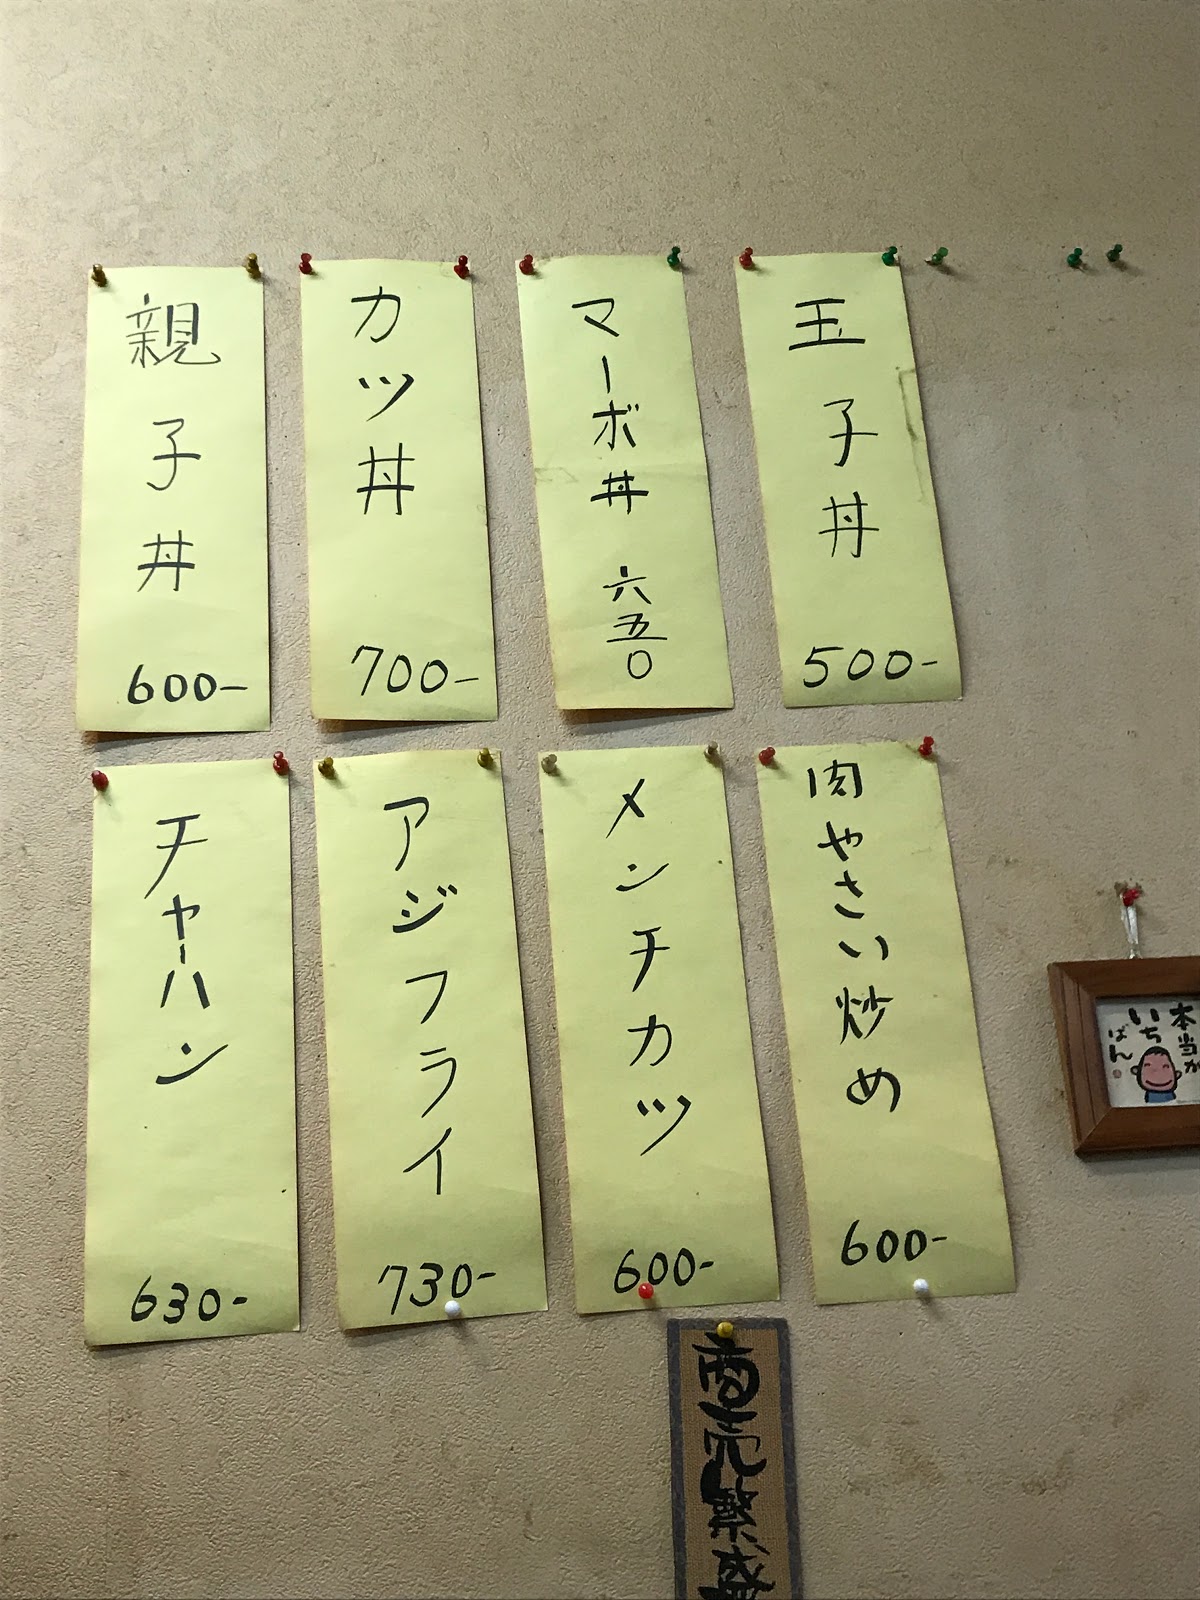 玉子丼 500-
マーボ丼 六五〇
カツ丼 700-
親子丼 600-
肉やさい炒め 600-
メンチカツ 600-
アジフライ 730-
チャーハン 630-
本当が
いち
ばん
商売繁盛